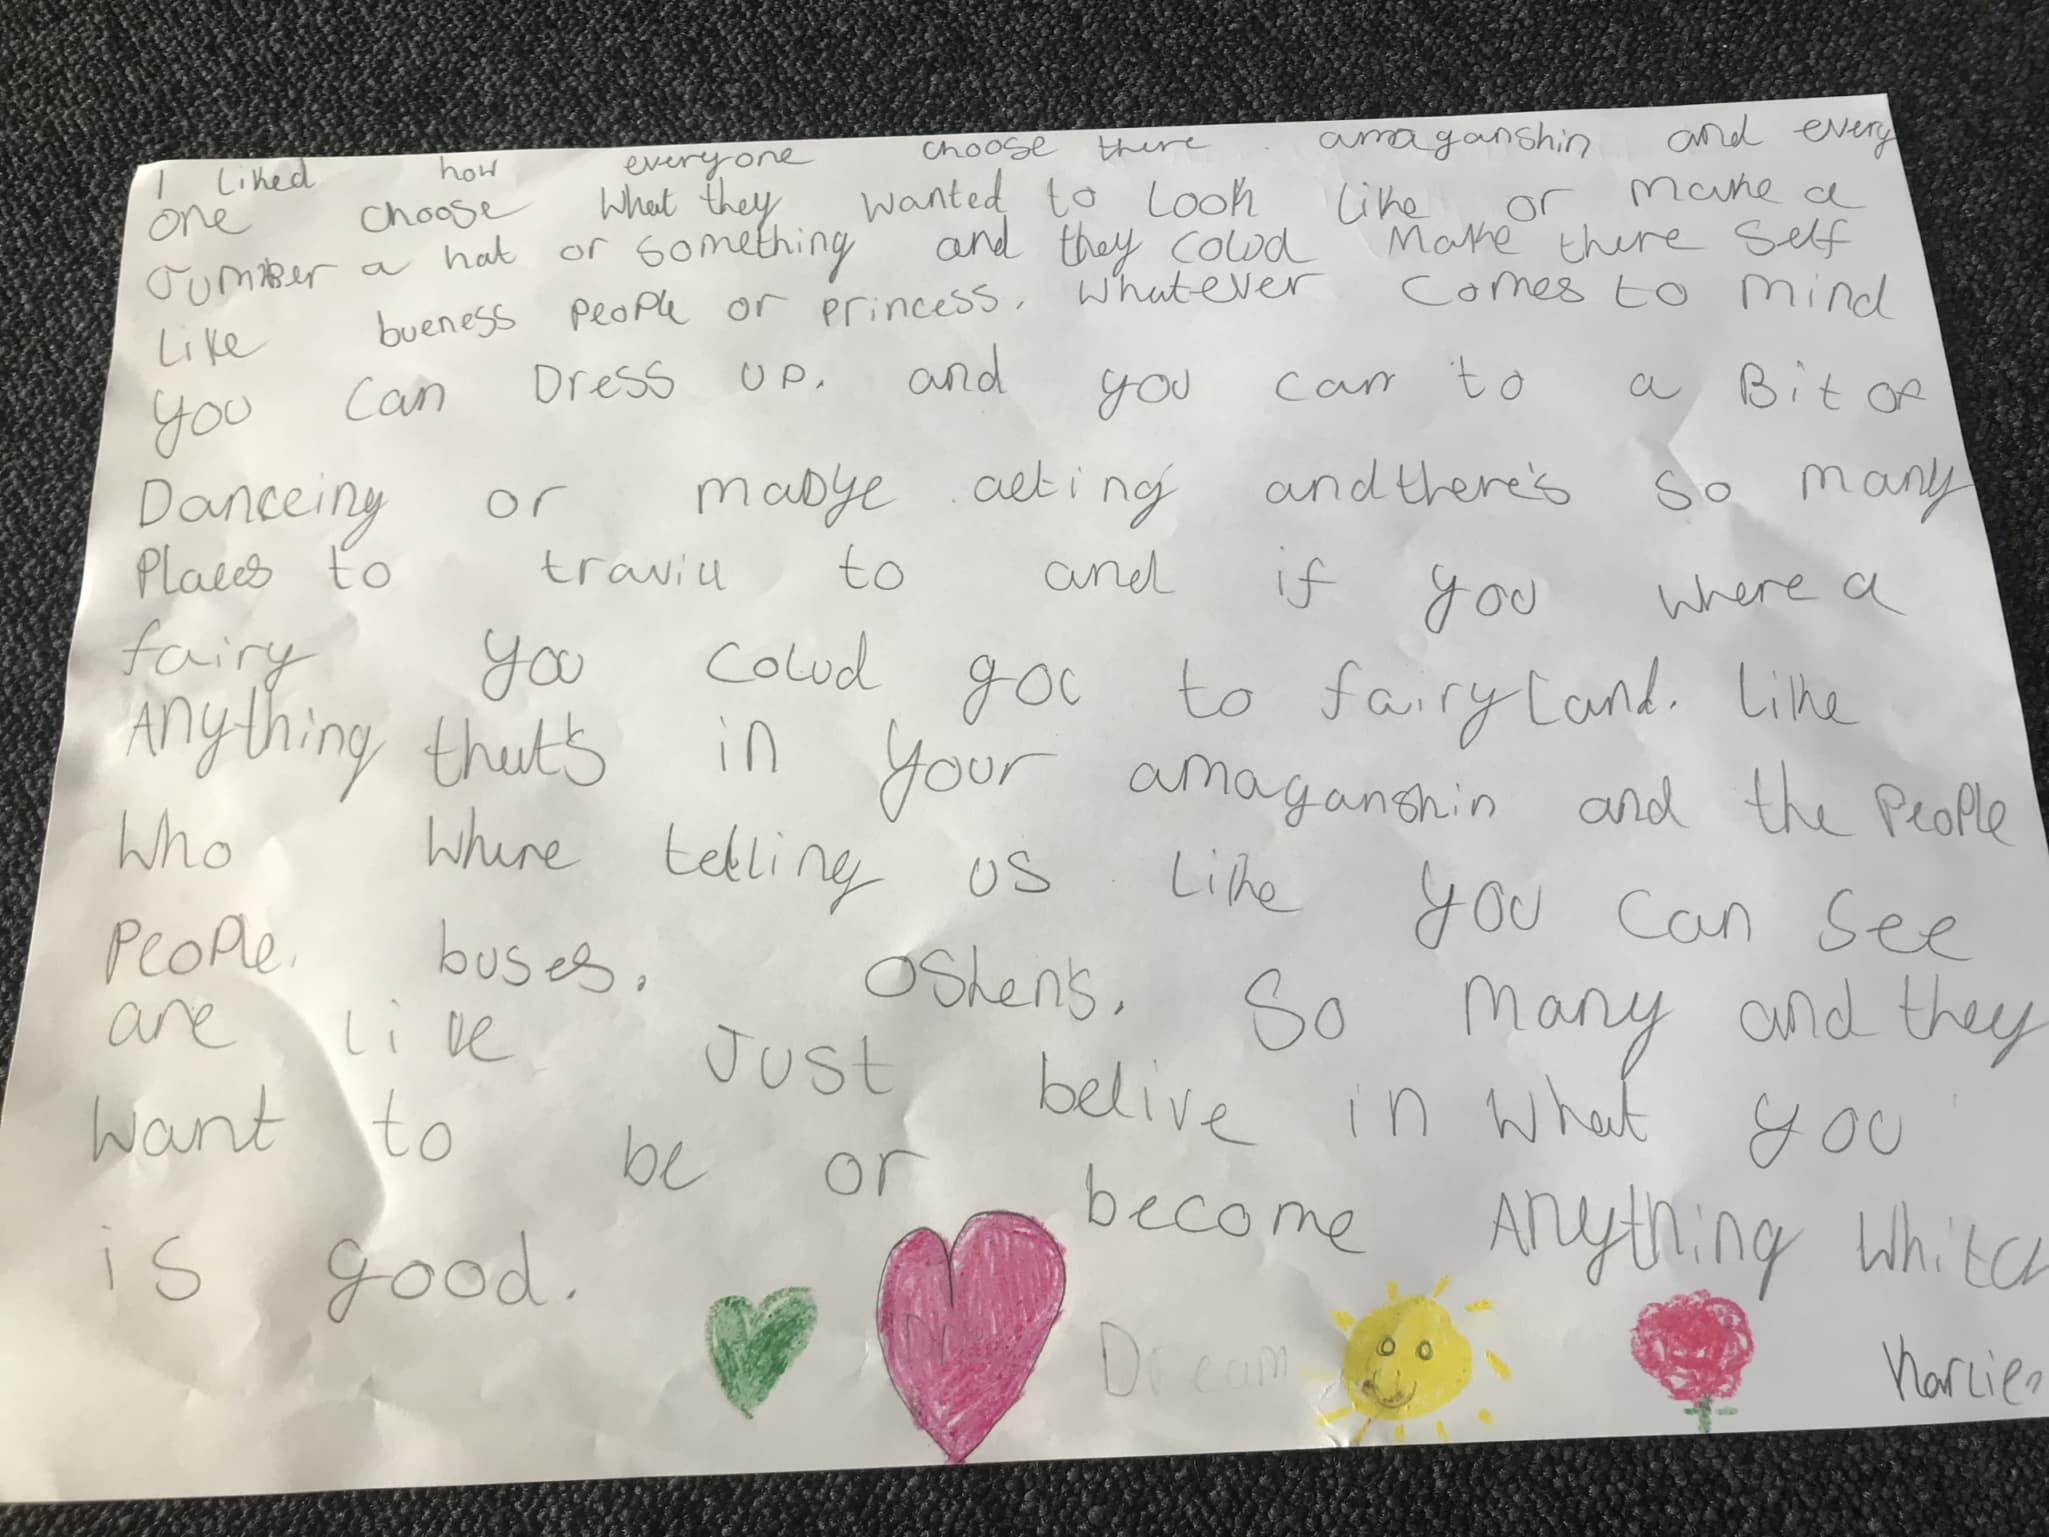 I Liked how everyone choose there amaganshin and every
one choose What they wanted to Look Like or make a
Jumber a hat or something and they colud make there self
Like bueness people or princess. Whatever comes to mind
you can Dress up. and you can to a Bit of
Danceing or madye acting and there's so many
Places to travill to and if you where a
fairy you colud go to fairyland. Like
Anything that's in your amaganshin and the People
Who Where telling us Like you can see
People. buses. Oshen's. So many and they
are like Just belive in What you
Want to be or become Anything Whitch
is good.
Dream
Karlien